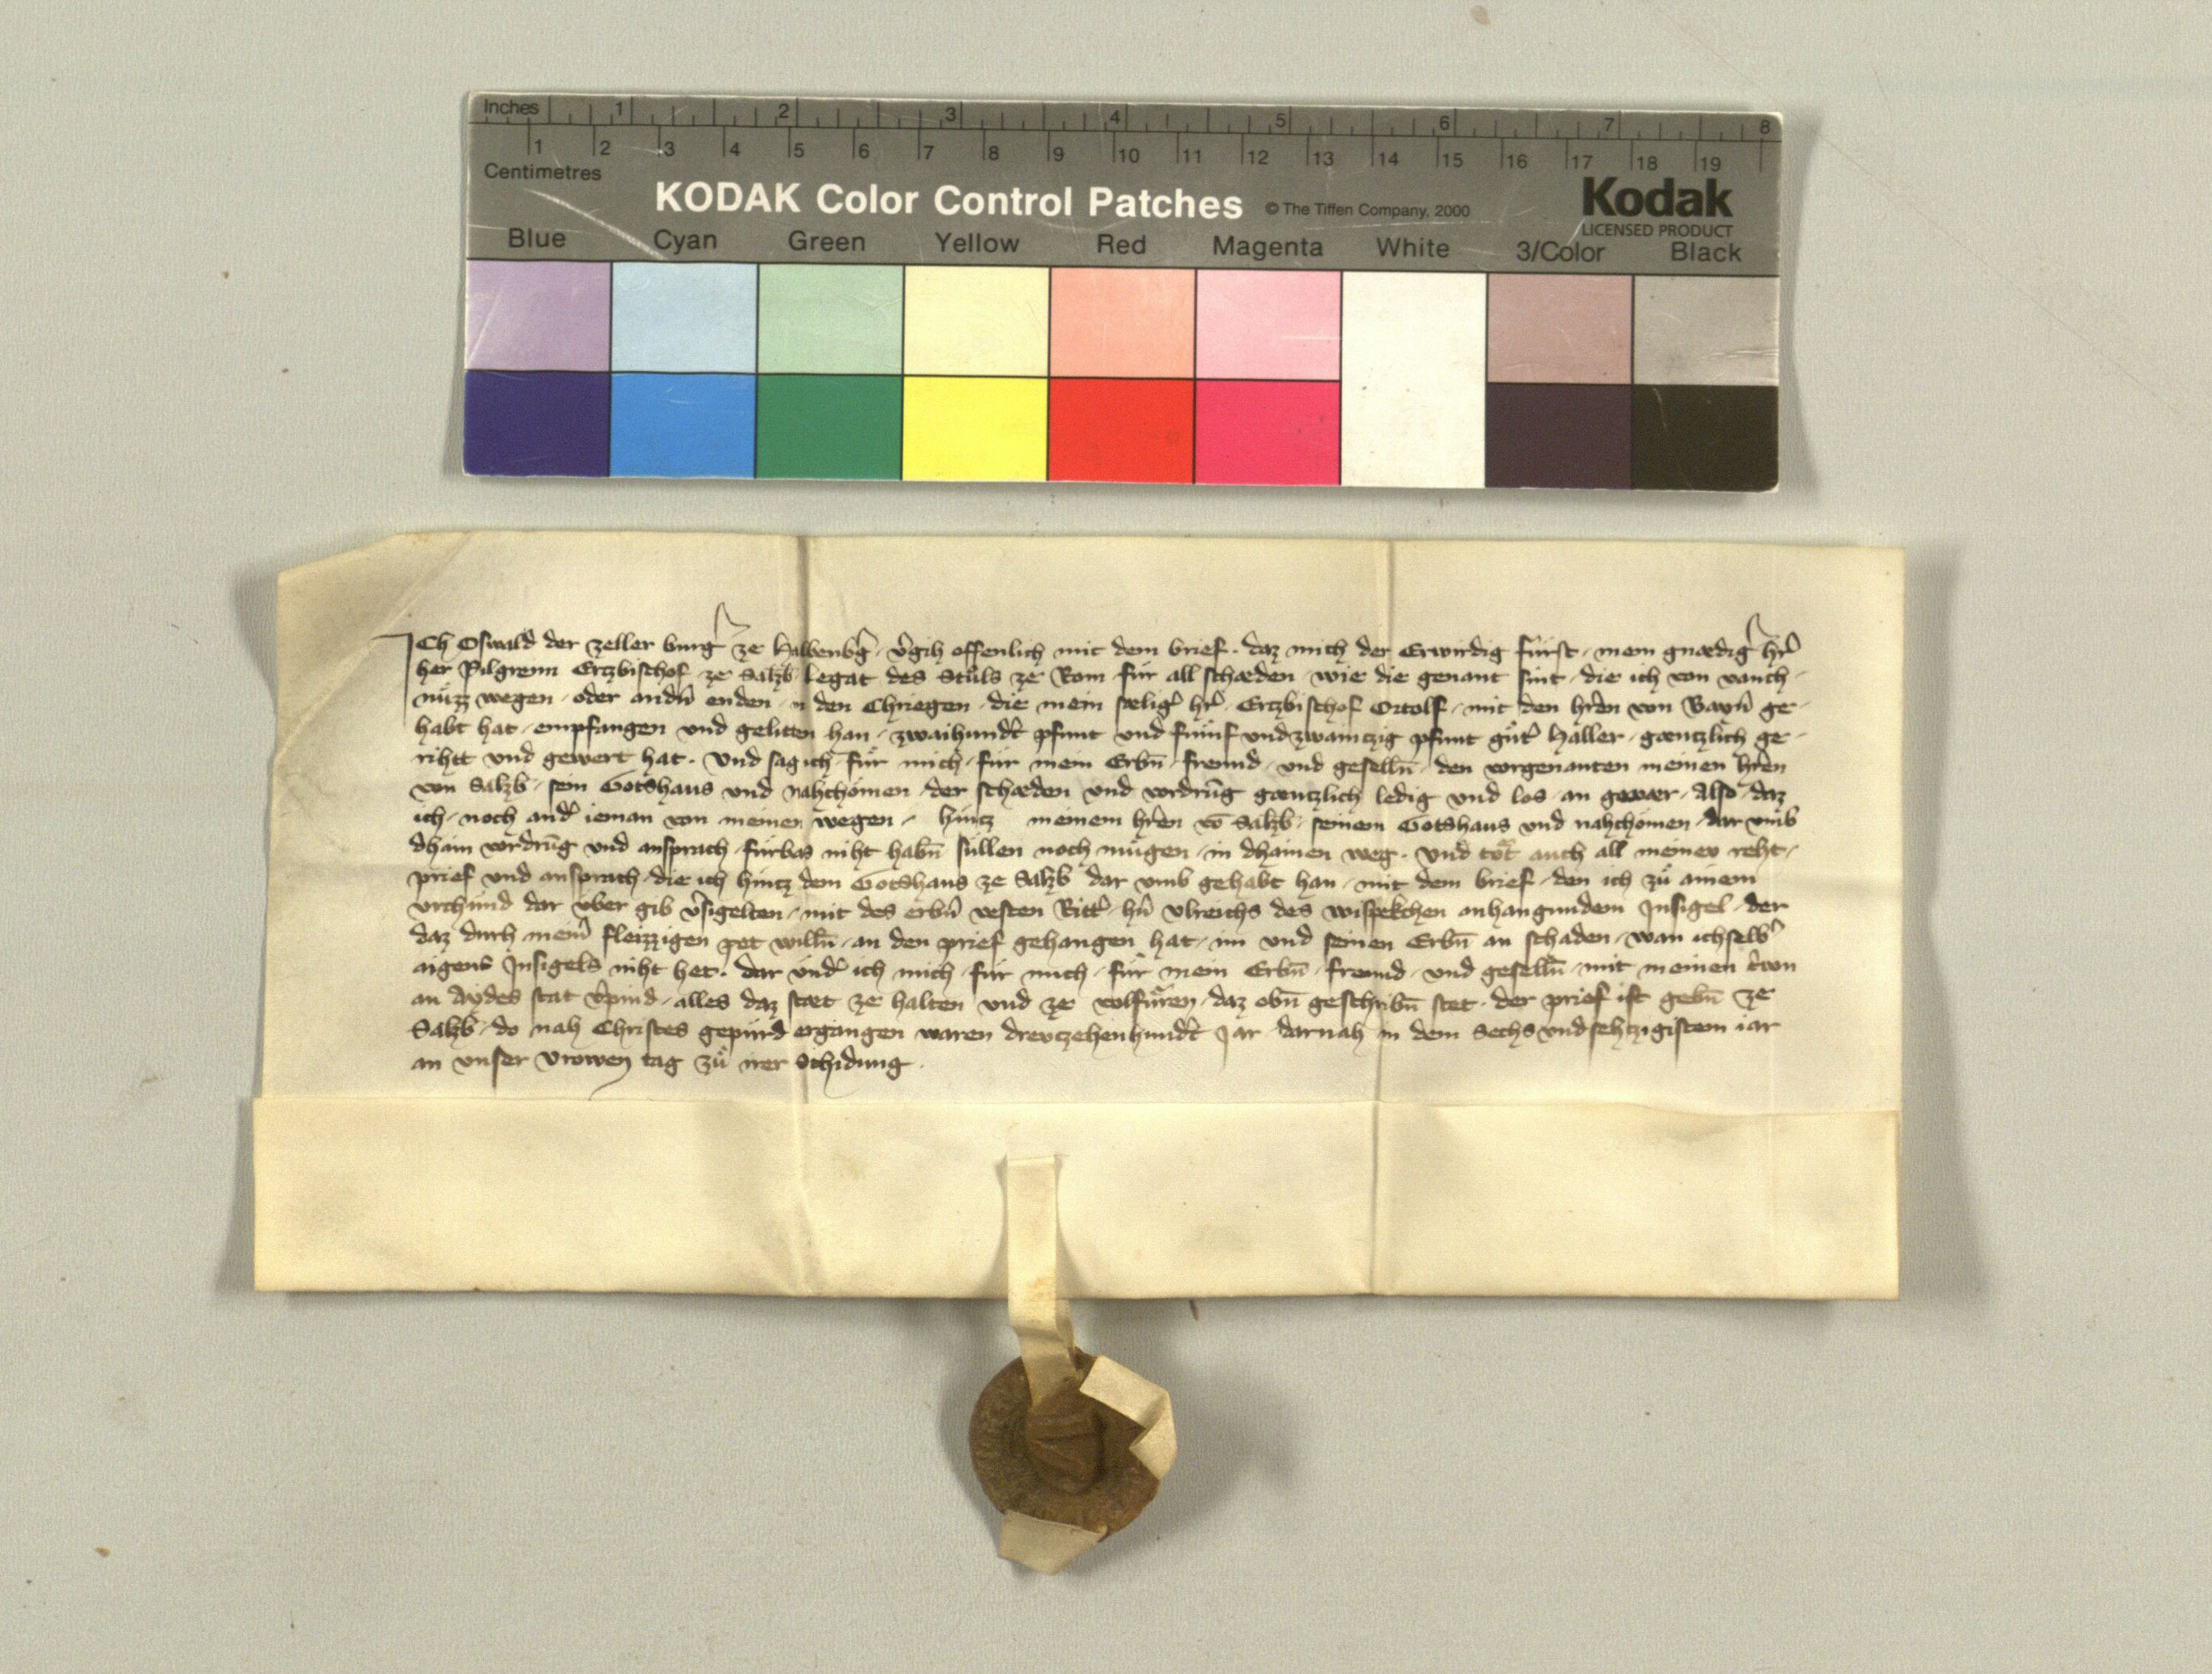 Inches 1 2 3 4 5 6 7 8
1 2 3 4 5 6 7 8 9 10 11 12 13 14 15 16 17 18 19
Centimetres
KODAK Color Control Patches © The Tiffen Company, 2000 Kodak
LICENSED PRODUCT
Blue Cyan Green Yellow Red Magenta White 3/Color Black
ICh Oswald der zeller burg̉ ze Halbenbg̉ · v̉gih offenlich mit dem brief · daz mich der Erwirdig fürst · mein gnædig̉ hr̉
her Pilgreim Ertzbischof ze Salzb̉ Legat des Stůls ze Rom für all schæden · wie die genant sint · die ich von
nützz wegen · oder andn̉ enden · in den Chriegen · die mein sælig̉ hr̉ · Ertzbischof Ortolf · mit den hr̉en von Bayn̉ ge-
habt hat · empfangen und gelitten han · zwaihundt̉ pfunt und fümf undzwaintzig pfunt gůt̉ Haller · gæntzlich ge-
rihtt und gewert hat · Und sag ich für mich · für mein Erbn̄ · freund · und geselln̄ · den vorgenanten meinen hr̉en
von Salzb̉ · sein Gotshaus und nahchomen · der schæden und vordrūg gæntzlich ledig und los · an gevær · Also daz
ich · noch and̉ ieman von meinen wegen · hintz meinem hr̉en vō Salzb̉ · seinem Gotshaus und nahchomen · dar umb
dhain vordrūg und ansprach · fürbas niht habn̄ süllen noch mügen · in dhainen weg · Und tött auch all meinev reht ·
prief und ansprach · die ich hintz dem Gotshaus ze Salzb̉ dar umb gehabt han · mit dem brief · den ich zů ainem
vrchünd dar vber gib v̉sigelten · mit des erbn̉ vesten Ritt̉ · hn̉ Vlreichs des wispekchen anhangundem Insigel · der
daz durh mein̉ fleizzigen pet willn̄ · an den prief gehangen hat · im und seinen Erbn̄ an schaden · wan ich selb̉
aigens Insigels niht het · dar und̉ ich mich · für mich · für mein Erbn̄ · freund · und geselln̄ · mit meinen trẘn
an Aydes stat v̉pind · alles daz stæt ze halten und ze volfüren · daz obn̄ geschribn̄ stet · der prief ist gebn̄ ze
Salzb̉ · do nah Christes gepürd ergangen waren drevtzehenhundt̉ Jar darnah in dem Sechsundsehtzigistem iar
an vnser Vrowen tag zů irer Schidung ·